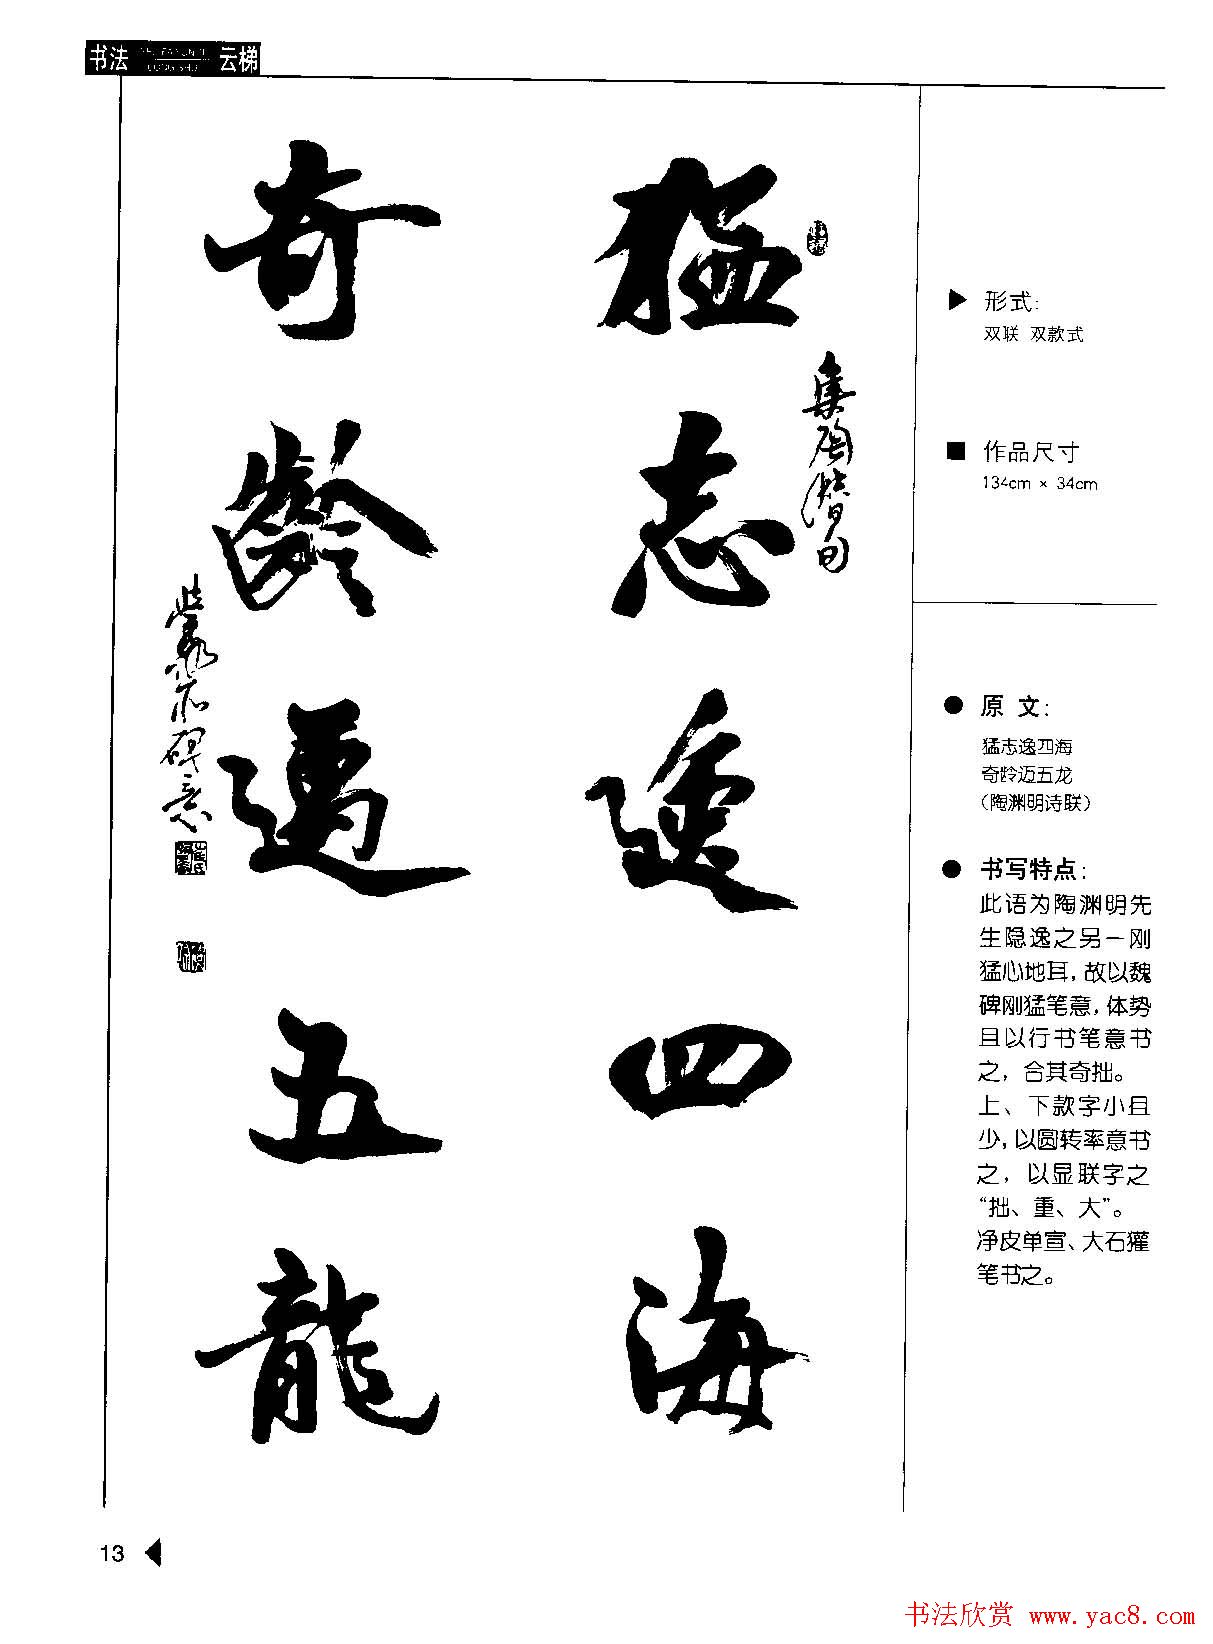 书法 云梯
猛志逸四海
集陶潜句
奇龄迈五龍
形式:
双联 双款式
作品尺寸
134cm × 34cm
原 文:
猛志逸四海
奇龄迈五龙
(陶渊明诗联)
书写特点:
此语为陶渊明先
生隐逸之另一刚
猛心地耳,故以魏
碑刚猛笔意,体势
且以行书笔意书
之,合其奇拙。
上、下款字小且
少,以圆转率意书
之,以显联字之
“拙、重、大”。
净皮单宣、大石獾
笔书之。
13
书法欣赏 www.yac8.com